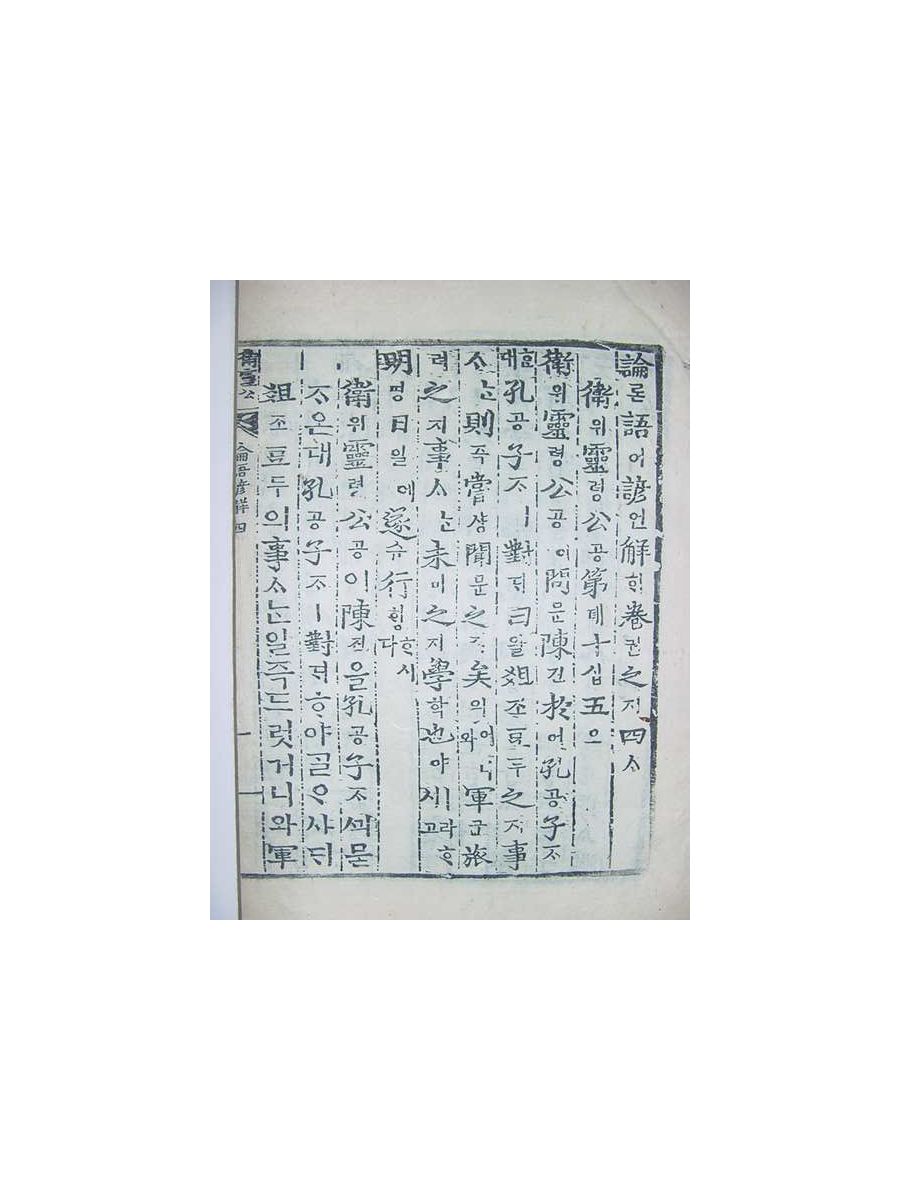 論론語어諺언解ᄒᆡ卷권之지四ᄉᆞ
衛위靈령公공第뎨十십五오
衛위靈령公공이問문陳딘於어孔공子ᄌᆞ
ᄒᆞᆫ대孔공子ᄌᆞㅣ對ᄃᆡ曰왈俎조豆두之지事
ᄉᆞᄂᆞᆫ則즉嘗샹聞문之지矣의어니와軍군旅
려之지事ᄉᆞᄂᆞᆫ未미之지學학也야ㅣ라ᄒᆞ시고
明명日일에遂슈行ᄒᆡᆼᄒᆞ시다
衛위靈령公공이陳딘을孔공子ᄌᆞᄭᅴ묻
ᄌᆞ온대孔공子ᄌᆞㅣ對ᄃᆡᄒᆞ야ᄀᆞᆯᄋᆞ샤ᄃᆡ
俎조豆두의事ᄉᆞᄂᆞᆫ일즉드럿거니와軍
衛靈公 論語諺解四 一